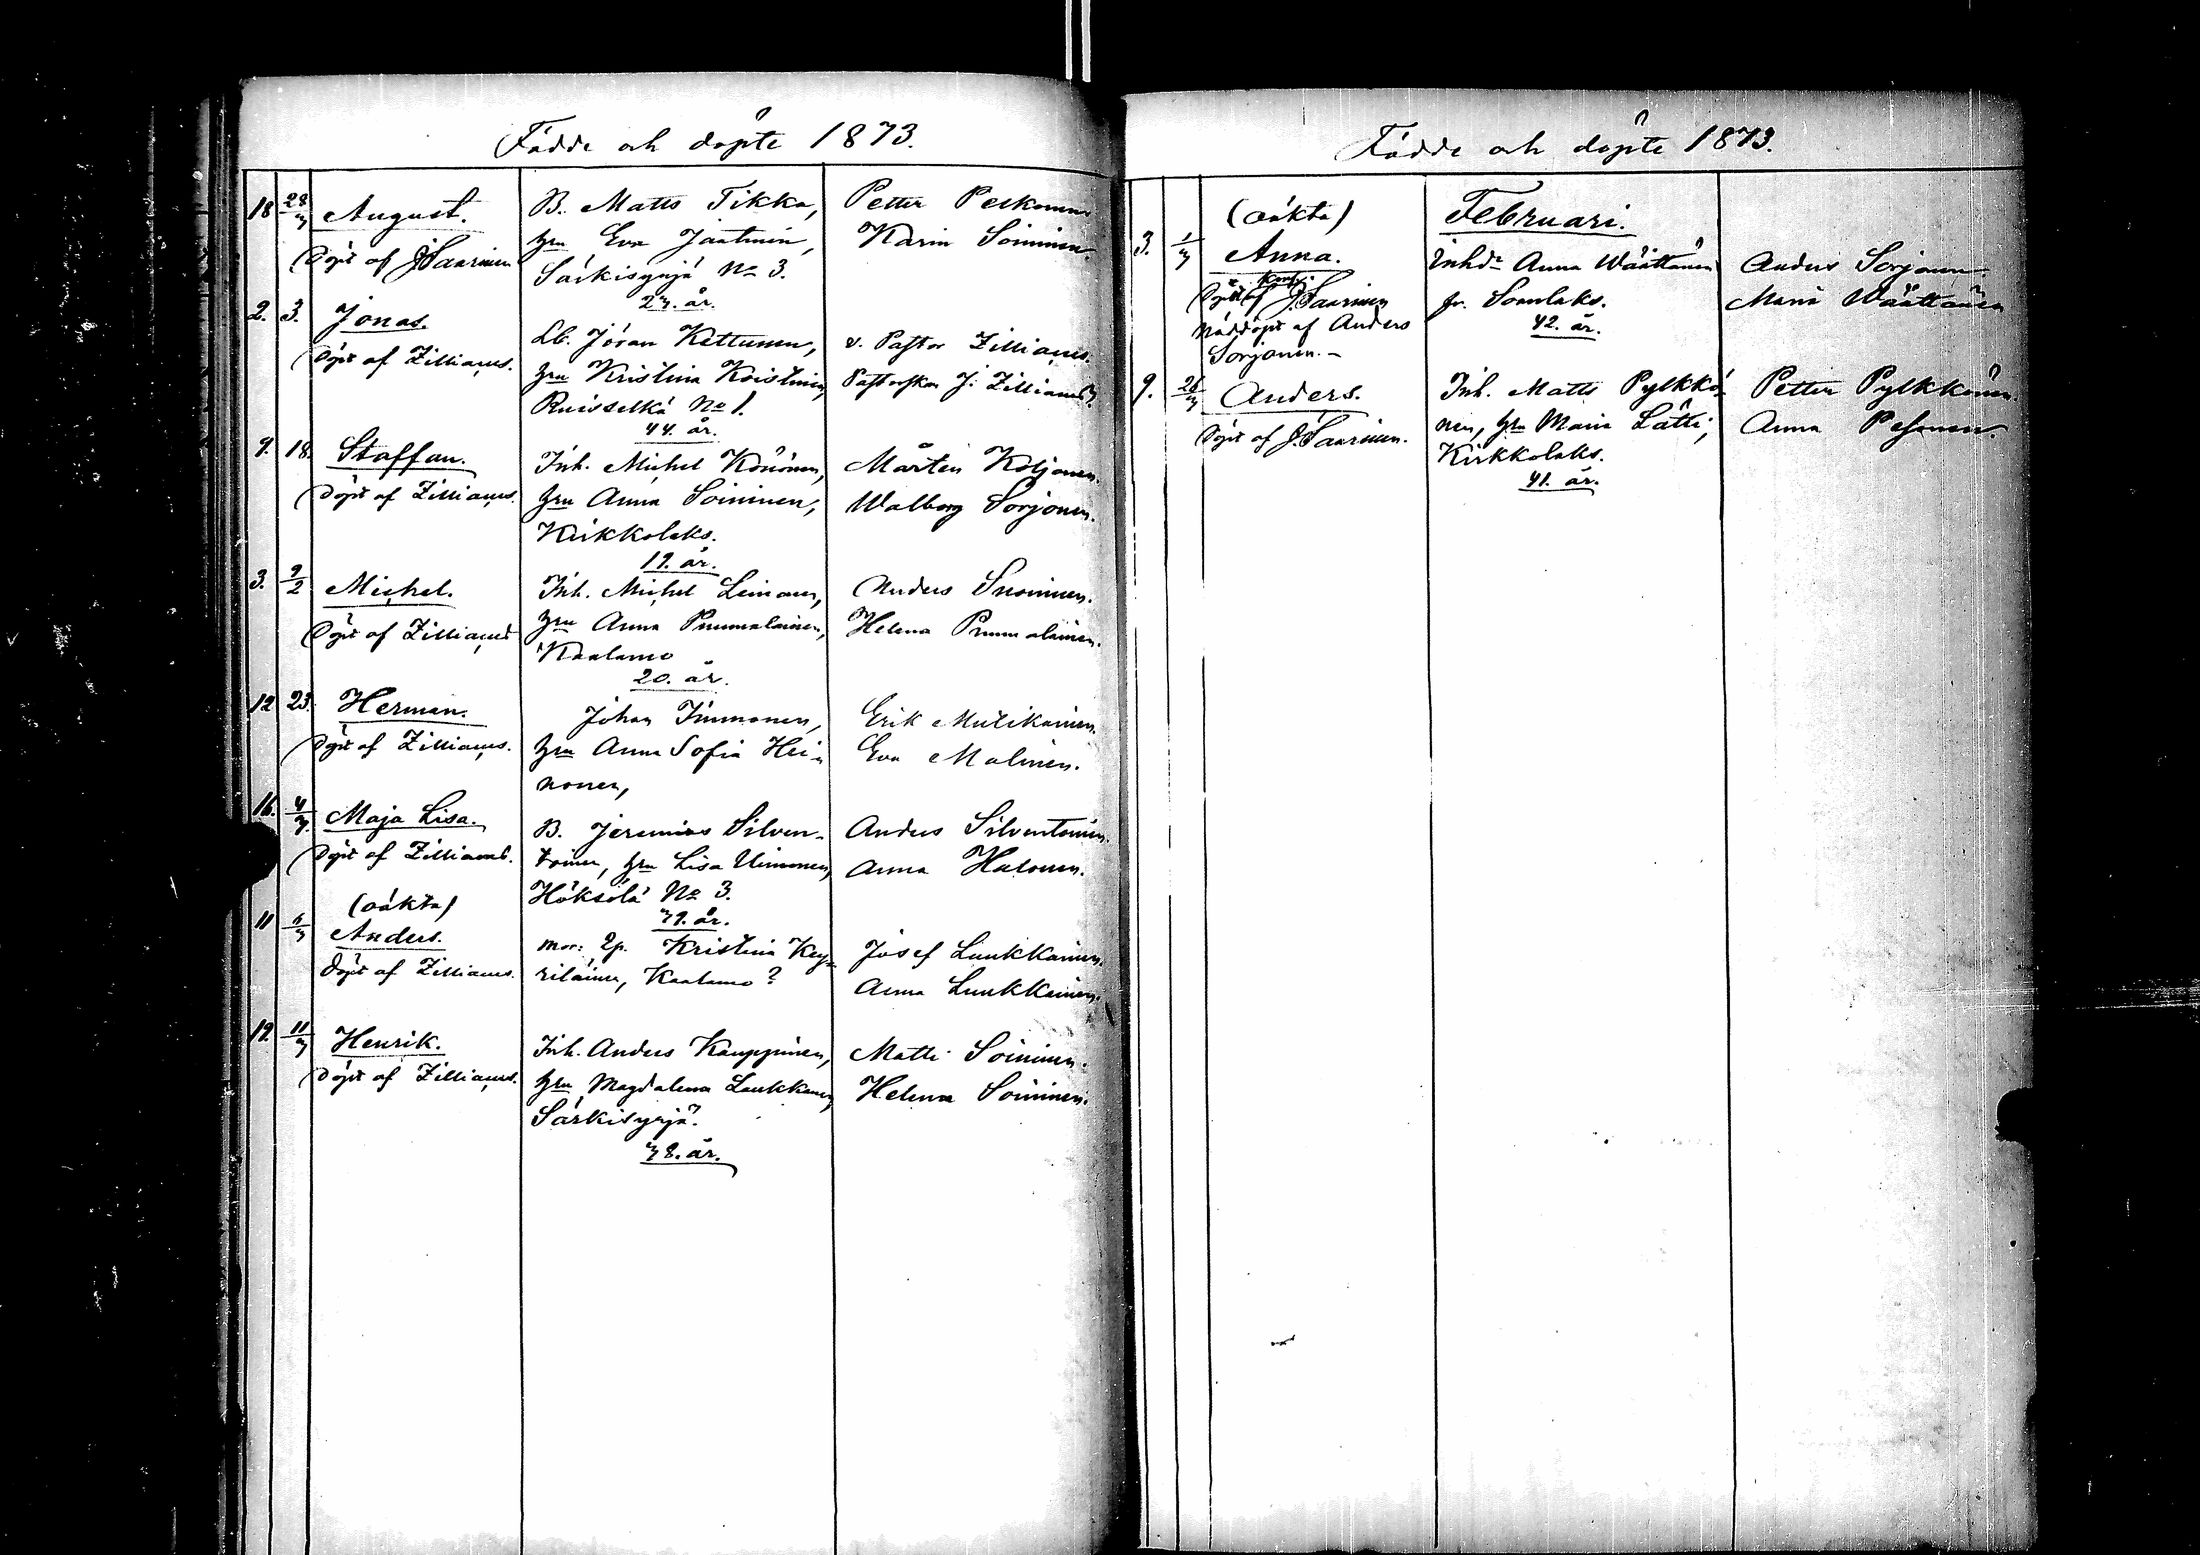 Födde och döpte 1873.
18 28/3 August.
Döpt af J. Saarinen
B. Matts Tikka,
hru Eva Jantunen,
Särkisyrjä No 3.
27. år.
Petter Peskonen
Karin Soininen
2. 3. Jonas.
Döpt af Zilliacus.
Lb. Jöran Kettunen,
hru Kristina Koistinen,
Ruisselkä No 1.
44. år.
v. Pastor Zilliacus.
Pastorskan J. Zilliacus.
9. 18. Staffan.
Döpt af Zilliacus.
Inh. Michel Könönen,
hru Anna Soininen,
Kirkkolaks.
19. år.
Mårten Koljonen.
Walborg Sorjonen.
3. 9/2 Michel.
Döpt af Zilliacus
Inh. Michel Leinonen,
hru Anna Puumalainen,
Kaalamo
20. år.
Anders Suoninen.
Helena Puumalainen.
12 23. Herman.
Döpt af Zilliacus.
Johan Immonen,
hru Anna Sofia Hei-
nonen,
Erik Mutikainen.
Eva Malinen.
16. 4/3. Maja Lisa.
Döpt af Zilliacus.
B. Jeremias Silven-
toinen, hru Lisa Uimonen,
Höksölä No 3.
39. år.
Anders Silventoinen.
Anna Halonen.
(oäkta)
11 Anders.
Döpt af Zilliacus.
mor: Kristina Key-
riläinen, Kaalamo?
Josef Luukkainen.
Anna Luukkainen.
19. 11/3 Henrik.
Döpt af Zilliacus.
Inh. Anders Kauppinen,
hru Magdalena Laukkanen,
Särkisyrjä.
38. år.
Matti Soininen.
Helena Soininen.
Födde och döpte 1873.
Februari.
(oäkta)
3. 1/3 Anna.
Döpt af J. Saarinen
Nöddöpt af Anders
Sorjonen. –
Inhdr Anna Wäättänen
fr. Soanlaks.
42. år.
Anders Sorjonen
Maria Wäättänen
9. 26/3 Anders.
Döpt af J. Saarinen.
Inh. Matts Pylkkö-
nen, hru Maria Lätti,
Kirkkolaks.
41. år.
Petter Pylkkönen.
Anna Pesonen.